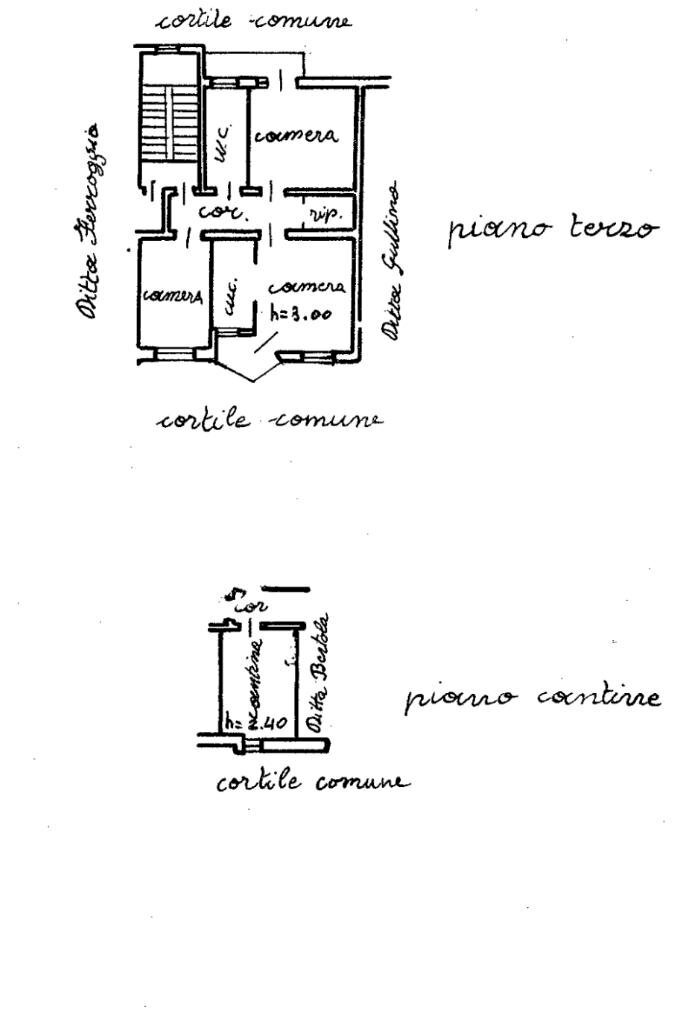 cortile comune
Ditta Ferroggio
w.c.
camera
cor.
rip.
piano terzo
Ditta Gullino
camera
cuc.
camera
h=3.00
cortile comune
cor
cantina
Ditta Bertola
piano cantine
h= 2.40
cortile comune